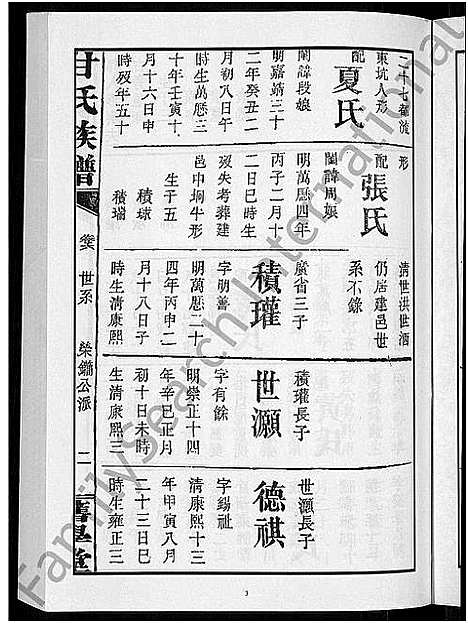 二十七都流
東坑人形
配夏氏
閨諱段娘
明嘉靖三十
二年癸丑二
月初八日午
時生萬歷三
十年壬寅十
月十六日申
時歿年五十
形
配張氏
閨諱周娘
明萬歷四年
丙子二月十
二日巳時生
歿失考葬建
邑中垌牛形
生子五
積球
積瑞
清世洪世酒
仍居建邑世
系不錄
積瓘
廣省三子
字明善
明萬歷二十
四年丙申二
月十八日子
時生清康熙
世灝
積瓘長子
字有餘
明崇正十四
年辛巳正月
初十日未時
生清康熙三
德祺
世灝長子
字錫祉
清康熙十三
年甲寅八月
二十三日巳
時生雍正三
甘氏族譜
卷 世系
公派
二
3
FamilySearch International